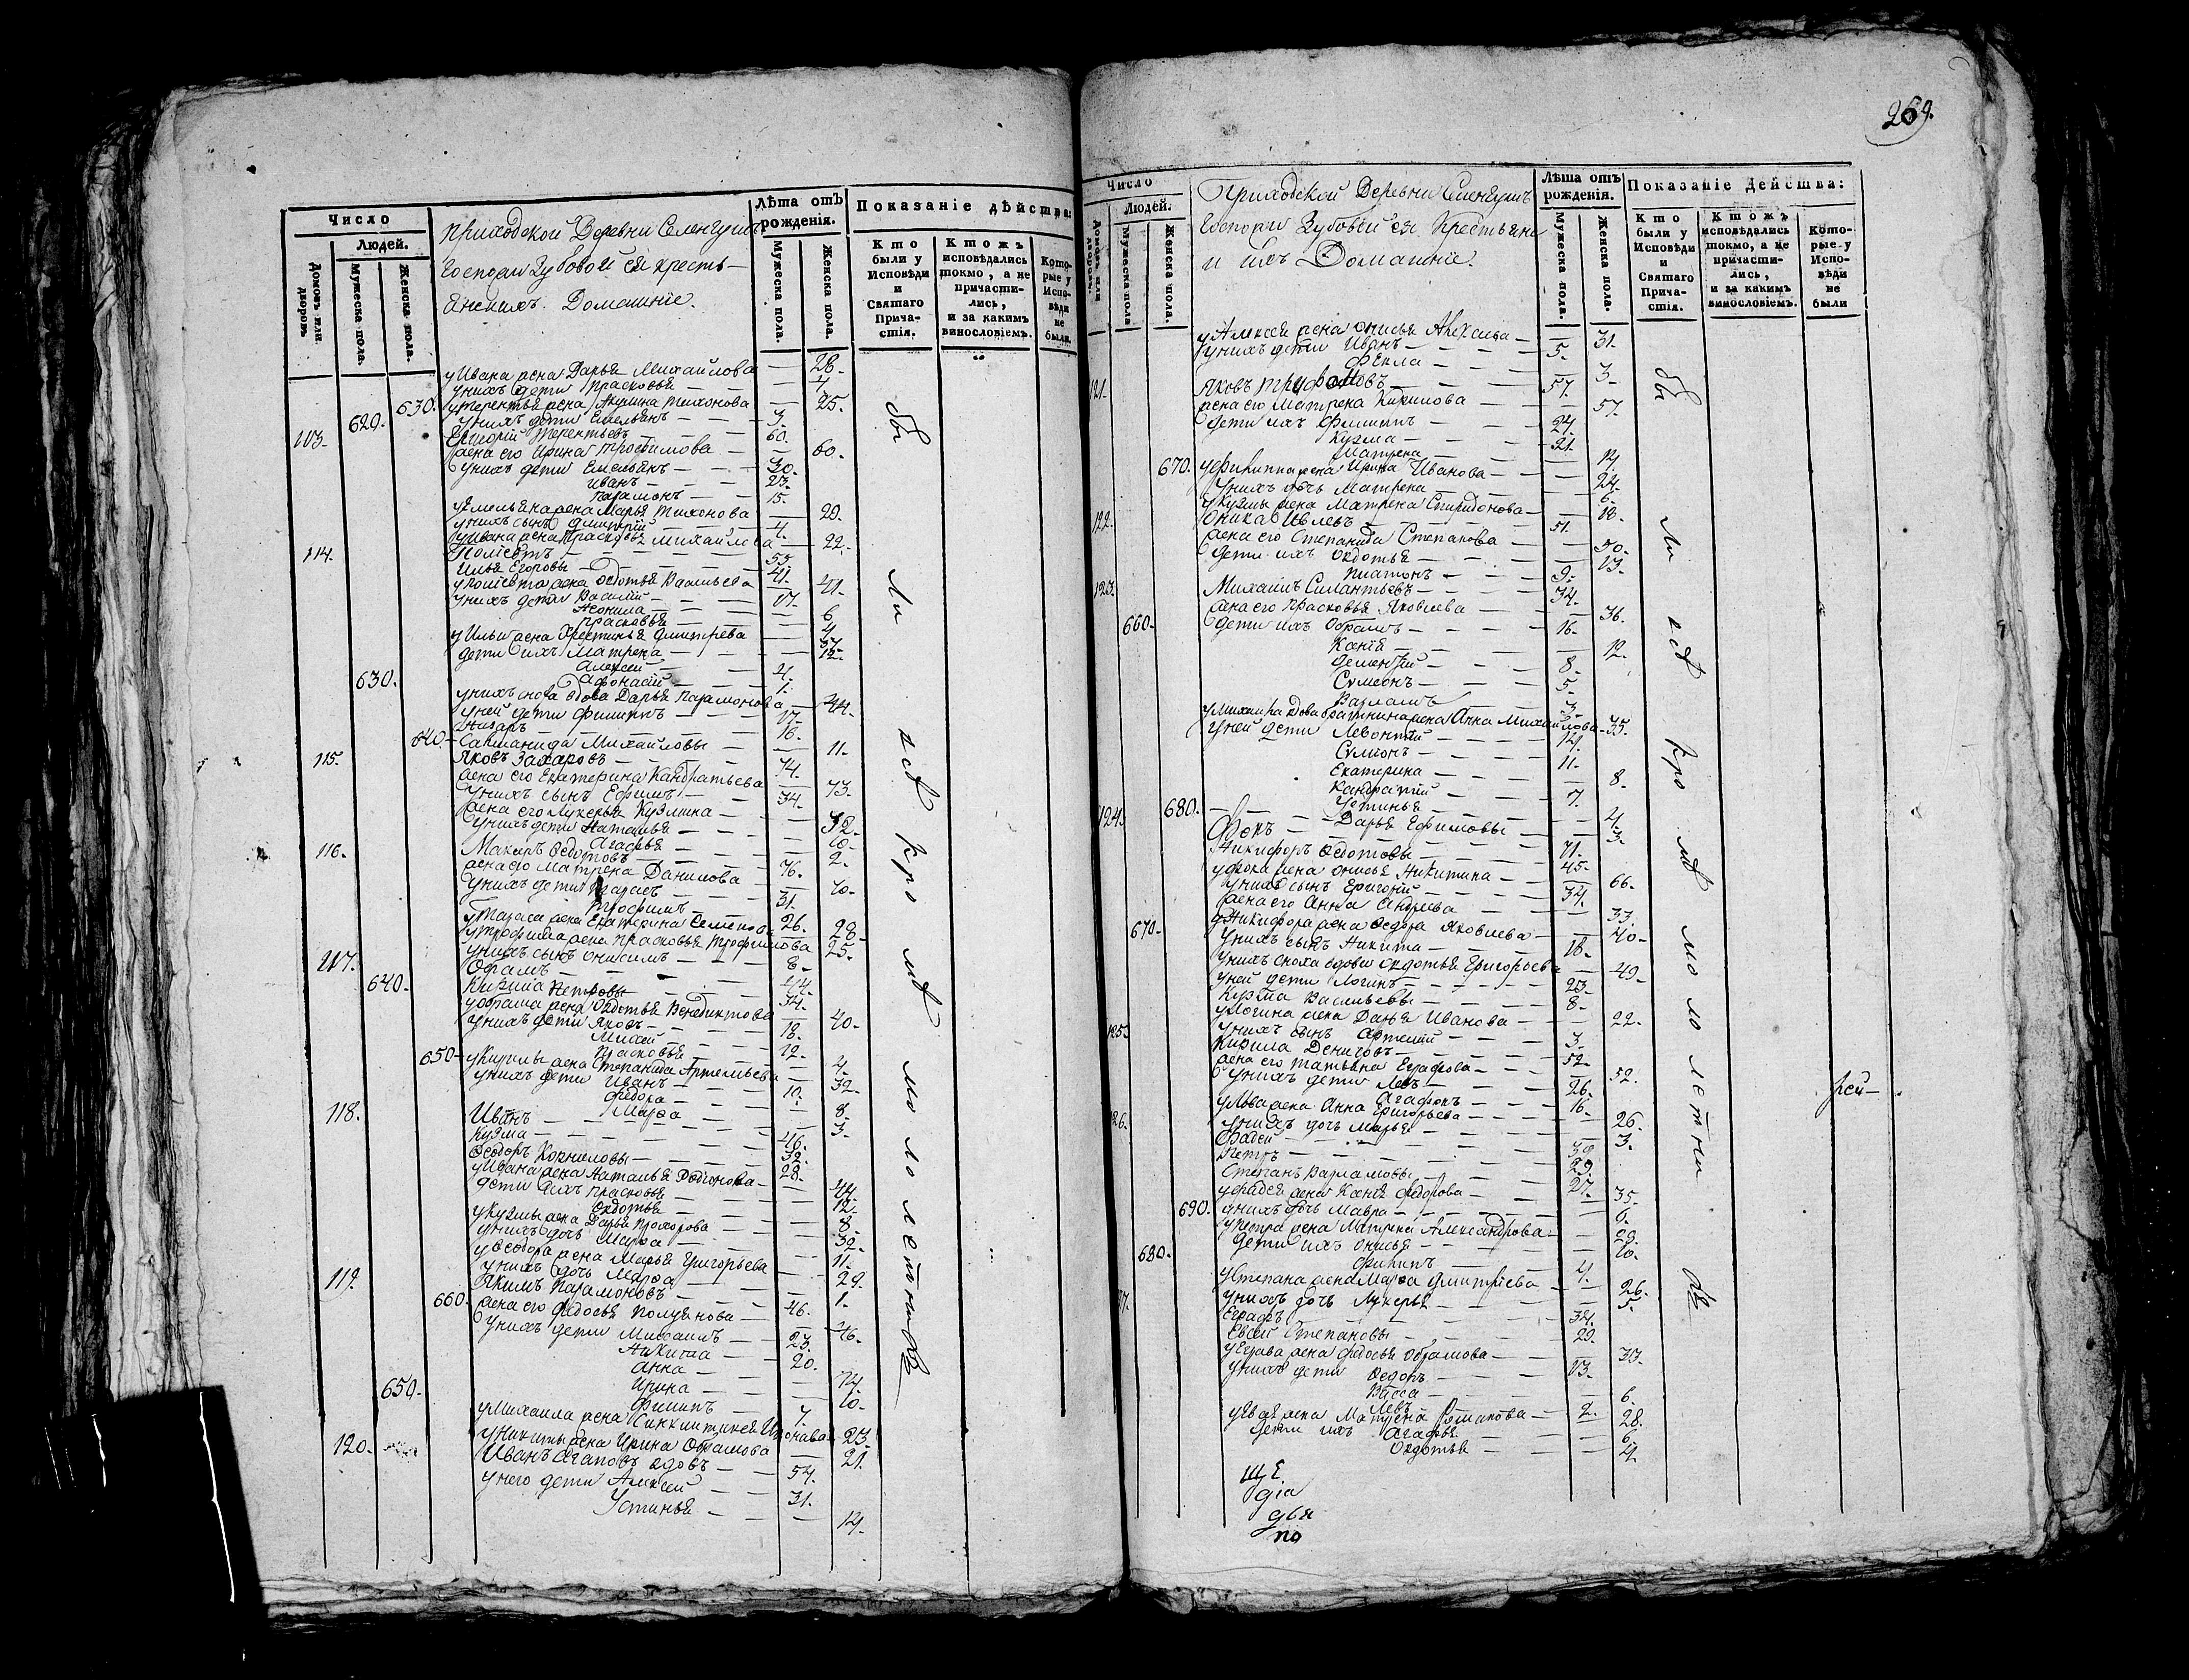 269.
Число
Людей.
Домовъ или дворовъ
Мужеска пола.
Женска пола.
Приходской Деревни Селенгушъ
Госпожи Зубовой ея кресть-
янскихъ Домашніе.
Лѣта отъ рожденія.
Мужеска пола.
Женска пола.
Показаніе дѣйства:
Кто были у Исповѣди и Святаго Причастія.
Ктожъ исповѣдались токмо, а не причастились, и за какимъ винословіемъ.
Которые у Исповѣди не были.
уИвана жена Дарья Михайлова — 28.
унихъ дети Прасковья — 4.
630. утерентья жена Акулина Тихонова — 25.
620. унихъ дети Емельянъ — 3.
113. Григорій Терентьевъ — 60.
жена его Ирина Трофимова — 60.
унихъ дети Емельянъ — 30.
Иванъ — 23.
Парамонъ — 15.
уЕмельяна жена Марья Тихонова — 29.
унихъ сынъ Дмитрій — 4.
уИвана жена Прасковья Михайлова — 22.
114. Поліевтъ — 53.
Илья Егоровы — 41.
уполіевта жена Федотья Васильева — 41.
унихъ дети Василій — 17.
Неонила — 6.
Прасковья — 4.
уИльи жена Христинья Дмитрева — 37.
дети ихъ Матрена — 12.
Алексей — 4.
630. Афонасій — 1.
унихъ сноха вдова Дарья Парамонова — 44.
уней дети Филиппъ — 17.
Назаръ — 16.
640. Саломанида Михайловы — 11.
115. Яковъ Захаровъ — 74.
жена его Екатерина Кандратьева — 73.
унихъ сынъ Ефимъ — 34.
жена его Лукерья Кузмина — 32.
унихъ дети Наталья — 10.
Агафья — 2.
116. Макаръ Федотовъ — 76.
жена его Матрена Данилова — 70.
унихъ дети Тарасъ — 31.
Трофимъ — 26.
уТараса жена Екатерина Семенова — 28.
утрофима жена Прасковья Трофимова — 25.
унихъ сынъ Онисимъ — 8.
117. Офамъ — 44.
640. Кирила Петровы — 34.
жена Овдотья Венедиктова — 40.
унихъ дети Яковъ — 18.
Михей — 12.
Прасковья — 4.
650. уКирилы жена Степанида Артемьева — 32.
унихъ дети Иванъ — 10.
Федора — 8.
Марфа — 3.
118. Иванъ — 46.
Кузма — 32.
Феодоръ Корниловы — 28.
уИвана жена Наталья Родіонова — 44.
дети ихъ Прасковья — 12.
Овдотья — 8.
укузмы жена Дарья Прохорова — 32.
унихъ дочь Марфа — 11.
уФеодора жена Марья Григорьева — 29.
унихъ дочь Марфа — 1.
119. Якимъ Парамоновъ — 46.
660. жена его Федосья Полуянова — 46.
унихъ дети Михаилъ — 23.
Никита — 20.
Анна — 14.
Ирина — 10.
650. Филипъ — 7.
уМихаила жена — 23.
уНикиты жена Ирина Обрамова — 21.
120. Иванъ Агаповъ вдовъ — 54.
унего дети Алексей — 31.
Устинья — 14.
бы ли всѣ кро мѣ мо ло летнихъ
Число
Людей.
Домовъ или дворовъ.
Мужеска пола
Женска пола.
Приходской Деревни Селенгушъ
Госпожи Зубовой ея Крестьяне
и ихъ Домашніе.
Лѣта отъ рожденія.
Мужеска пола.
Женска пола.
Показаніе Дейсшва:
Кто были у Исповѣди и Святаго Причастія.
Ктожъ исповѣдались токмо, а не причастились, и за какимъ винословіемъ.
Которые у Исповѣди не были
уАлексея жена Онисья — 31.
унихъ дети Иванъ — 5.
Фекла — 3.
121. Яковъ Трифановъ — 57.
жена его Матрена Кирилова — 57.
дети ихъ Филиппъ — 24.
Кузма — 21.
Матрена — 14.
670. уфилиппа жена Ирина Иванова — 24.
унихъ дочь Матрена — 6.
уКузмы жена Матрена Спиридонова — 18.
122. Оника Ивлевъ — 51.
жена его Степанида Степанова — 50.
дети ихъ Овдотья — 13.
Платонъ — 9.
123. Михаилъ Силантьевъ — 34.
жена его Прасковья Яковлева — 36.
660. дети ихъ Обрамъ — 16.
Ксенія — 12.
Дементій — 8.
Сумеонъ — 5.
Варламъ — 3.
уМихаила вдова братнина жена Анна Михайлова — 35.
уней дети Левонтій — 14.
Сумионъ — 11.
Екатерина — 8.
Кандратій — 7.
680. Устинья — 4.
Дарья Ефимовы — 3.
124. Фокъ — 71.
Никифоръ Федотовы — 45.
уфока жена Онисья Никитина — 66.
унихъ сынъ Григорій — 34.
жена его Анна Андреева — 33.
670. уНикифора жена Федора Яковлева — 40.
унихъ сынъ Никита — 18.
унихъ сноха вдова Овдотья Григорьева — 49.
уней дети Логинъ — 23.
Кузма Васильевы — 8.
уЛогина жена Дарья Иванова — 22.
унихъ сынъ Артемій — 3.
125. Кирила Денисовъ — 52.
жена его Татьяна Евграфова — 52.
унихъ дети Левъ — 26.
Агафонъ — 16.
уЛьва жена Анна Григорьева — 26.
унихъ дочь Марья — 3.
126. Фадей — 39.
Петръ — 29.
Степанъ Варламовы — 27.
уфадея жена Ксенія Федорова — 35.
690. унихъ дочь Мавра — 6.
уПетра жена Матрена Александрова — 29.
дети ихъ Онисья — 10.
680. Филипъ — 4.
уСтепана жена Марфа Дмитріева — 26.
унихъ дочь Лукерья — 5.
127. Еграфъ — 34.
Евсей Степановы — 29.
уЕграва жена Федосья Обрамова — 33.
унихъ дети Федоръ — 13.
Васса — 6.
Левъ — 2.
уЕвсея жена Матрена Романова — 28.
дети ихъ Агафья — 6.
Овдотья — 4.
бы ли всѣ кро мѣ мо ло летнихъ
рей-
ще
діа
дья
по